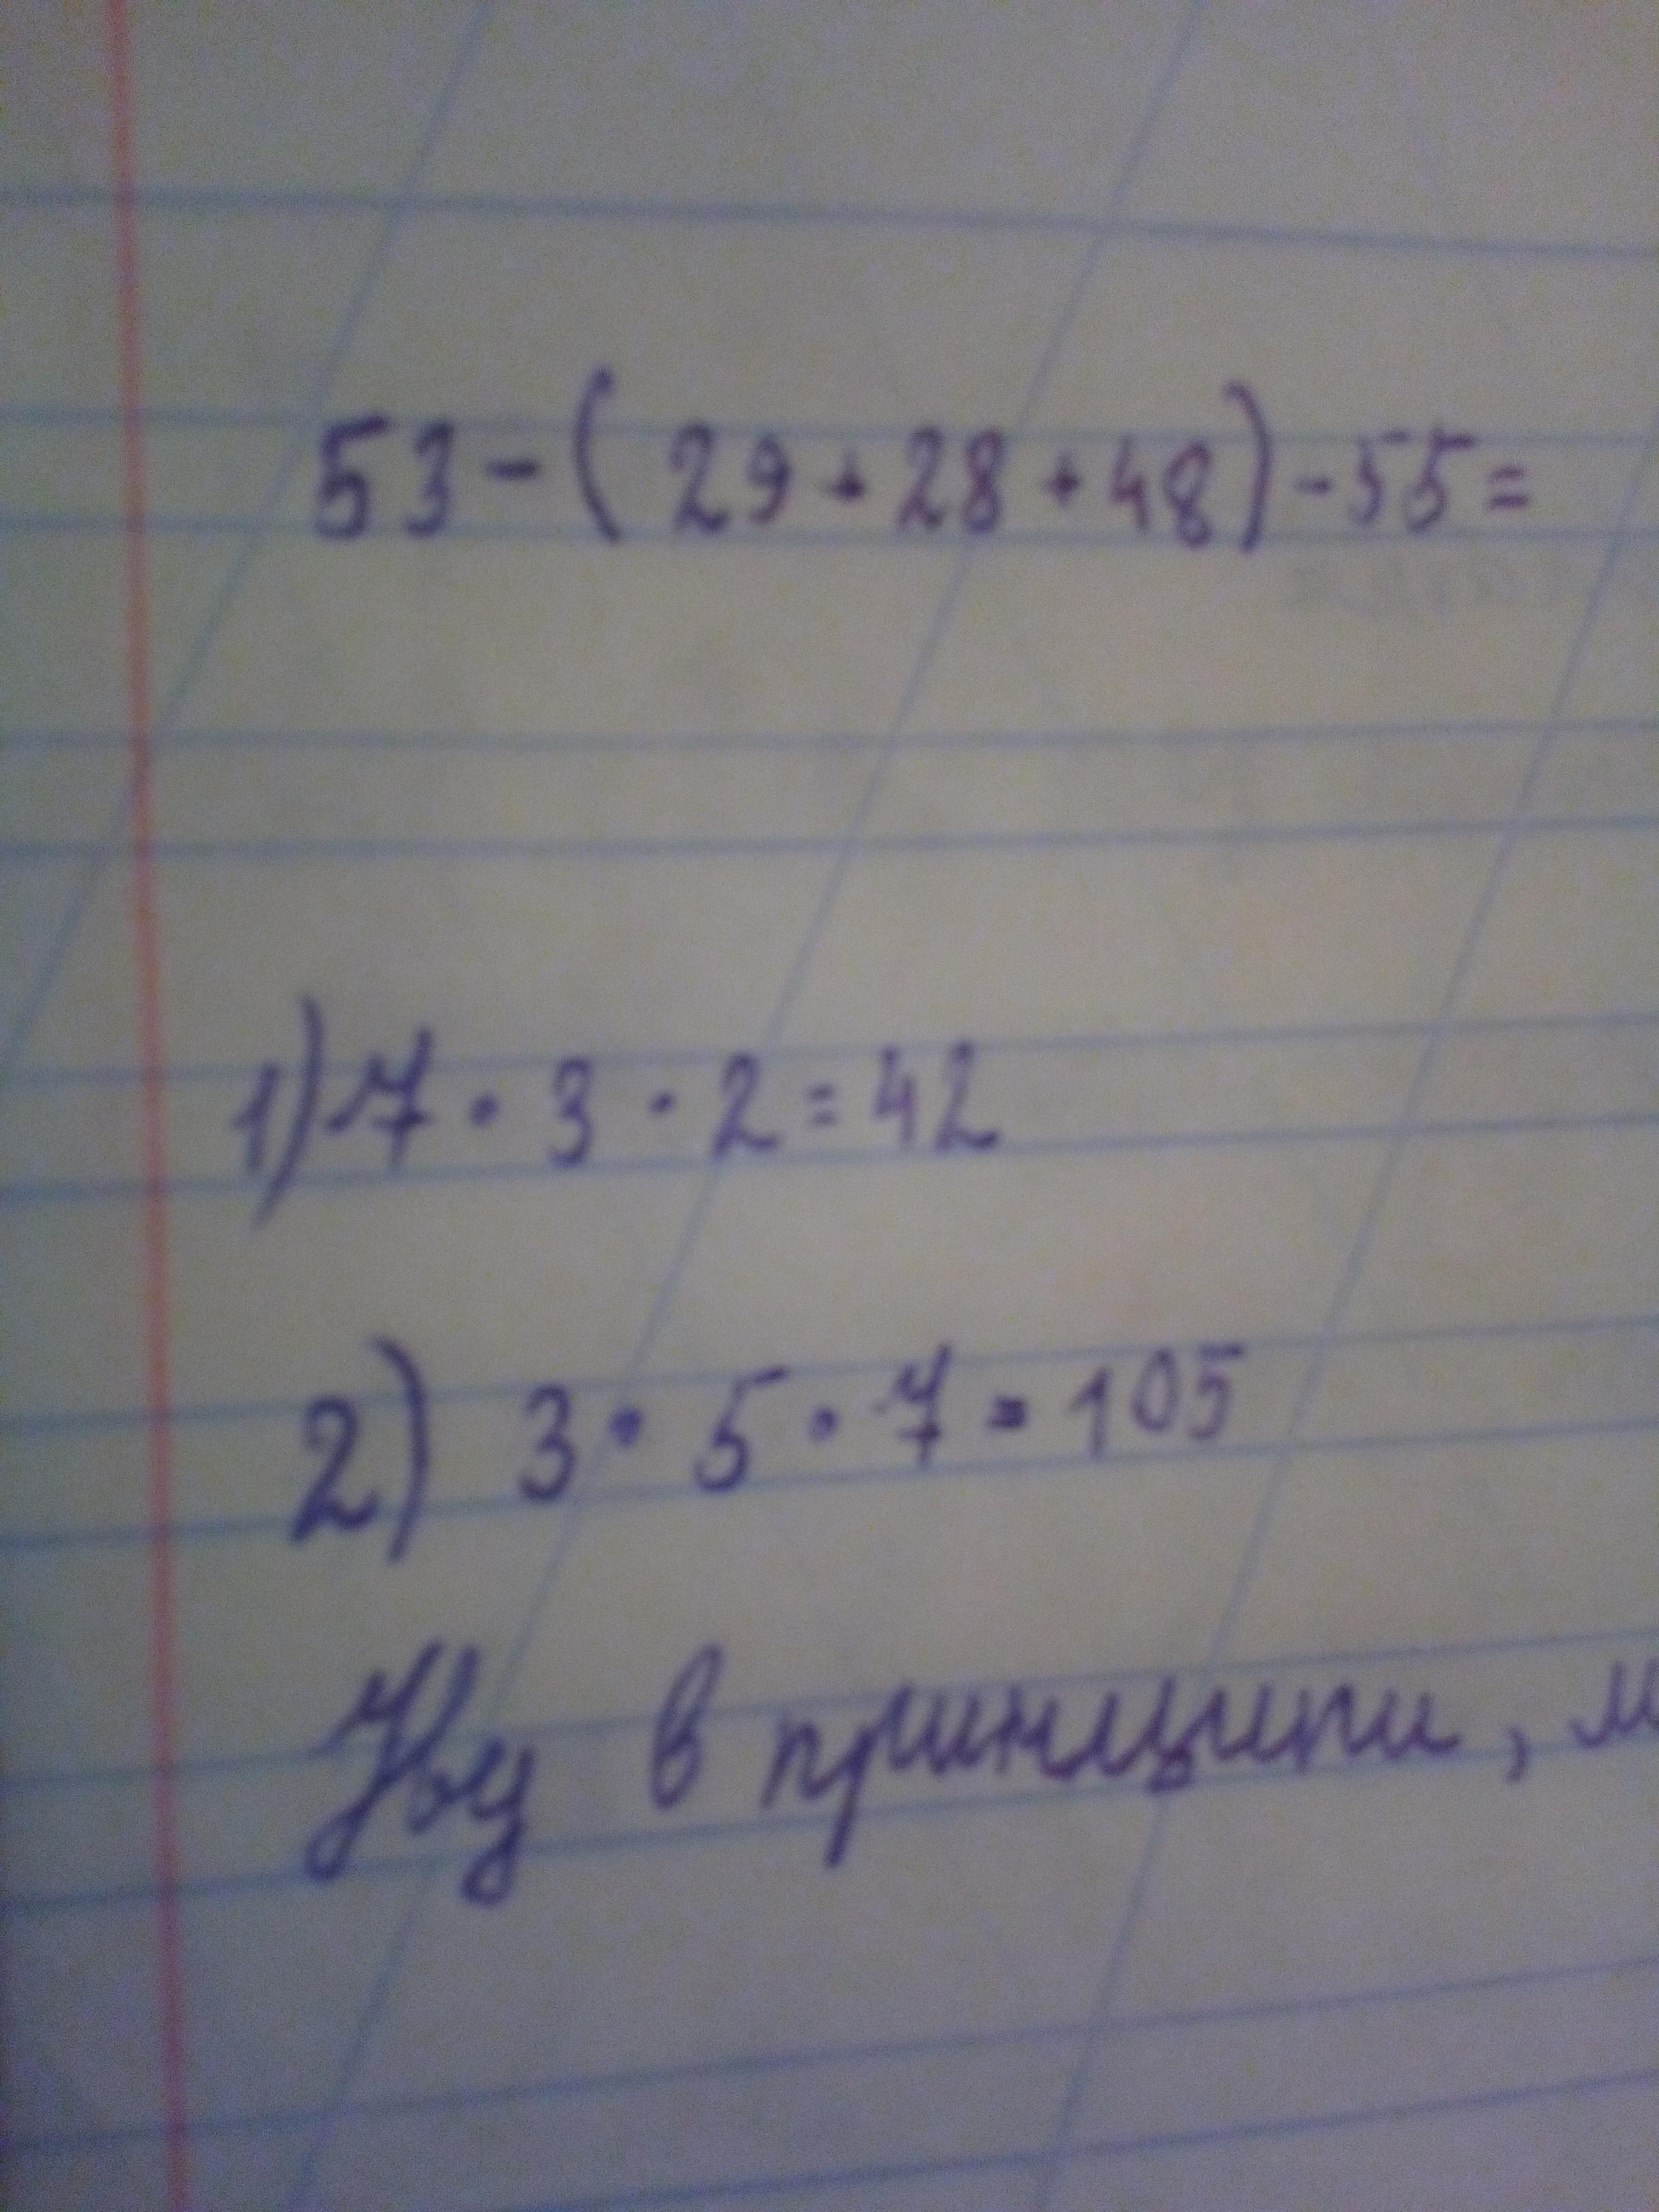 53-(29+28+48)-55=
1) 7·3·2=42
2) 3·5·7=105
Ну в принципи, м